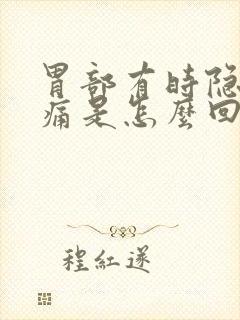 胃部有时隐
痛是怎麼回
程紅遂